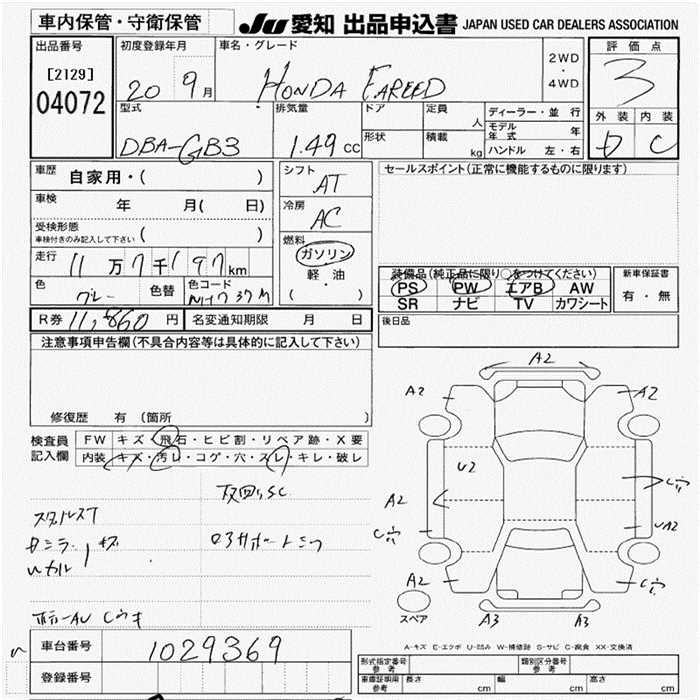 車内保管・守衛保管
JU 愛知 出品申込書 JAPAN USED CAR DEALERS ASSOCIATION
出品番号
[2129]
04072
初度登録年月
20 9月
車名・グレード
HONDA FAREED
2WD
・
4WD
評価点
3
外装 内装
D C
型式
DBA-GB3
排気量
1.49 cc
ドア
定員
人
形状
積載
kg
ディーラー・並行
モデル年式 年
ハンドル 左・右
車歴 自家用・( )
車検 年 月( 日)
受検形態
車検付きのみ記入して下さい ( )
走行 11万7千197km
色 グレー
色替
色コード
NH737M
シフト
AT
冷房
AC
燃料
ガソリン
軽・油
( ・ )
セールスポイント(正常に機能するものに限ります)
装備品(純正品に限り○をつけてください)
PS PW エアB AW
SR ナビ TV カワシート
新車保証書
有・無
R券 11,860 円
名変通知期限 月 日
後日品
注意事項申告欄(不具合内容等は具体的に記入して下さい)
修復歴 有(箇所
検査員
記入欄
FW キズ・飛石・ヒビ割・リペア跡・X要
内装 キズ・汚レ・コゲ・穴・スレ・キレ・破レ
A2
A2
A2
U2
A2
UA2
A2
A3
A3
スペア
A-キズ E-エクボ U-凹み W-補修跡 S-サビ C-腐食 XX-交換済
車台番号
1029369
登録番号
型式指定番号
参考
類別区分番号
参考
車庫証明用
参考
長さ cm
幅 cm
高さ cm